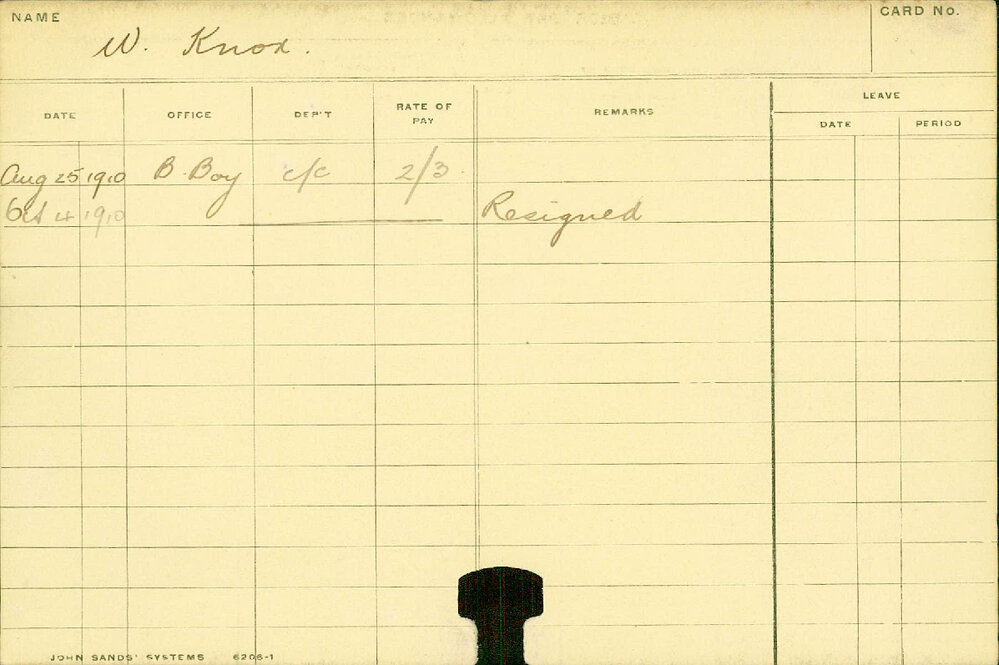 NAME
W. Knox.
CARD No.
DATE OFFICE DEP'T RATE OF PAY REMARKS LEAVE
DATE PERIOD
Aug 25 1910 B. Boy c/c 2/3
Oct 4 1910 Resigned
JOHN SANDS' SYSTEMS 6206-1